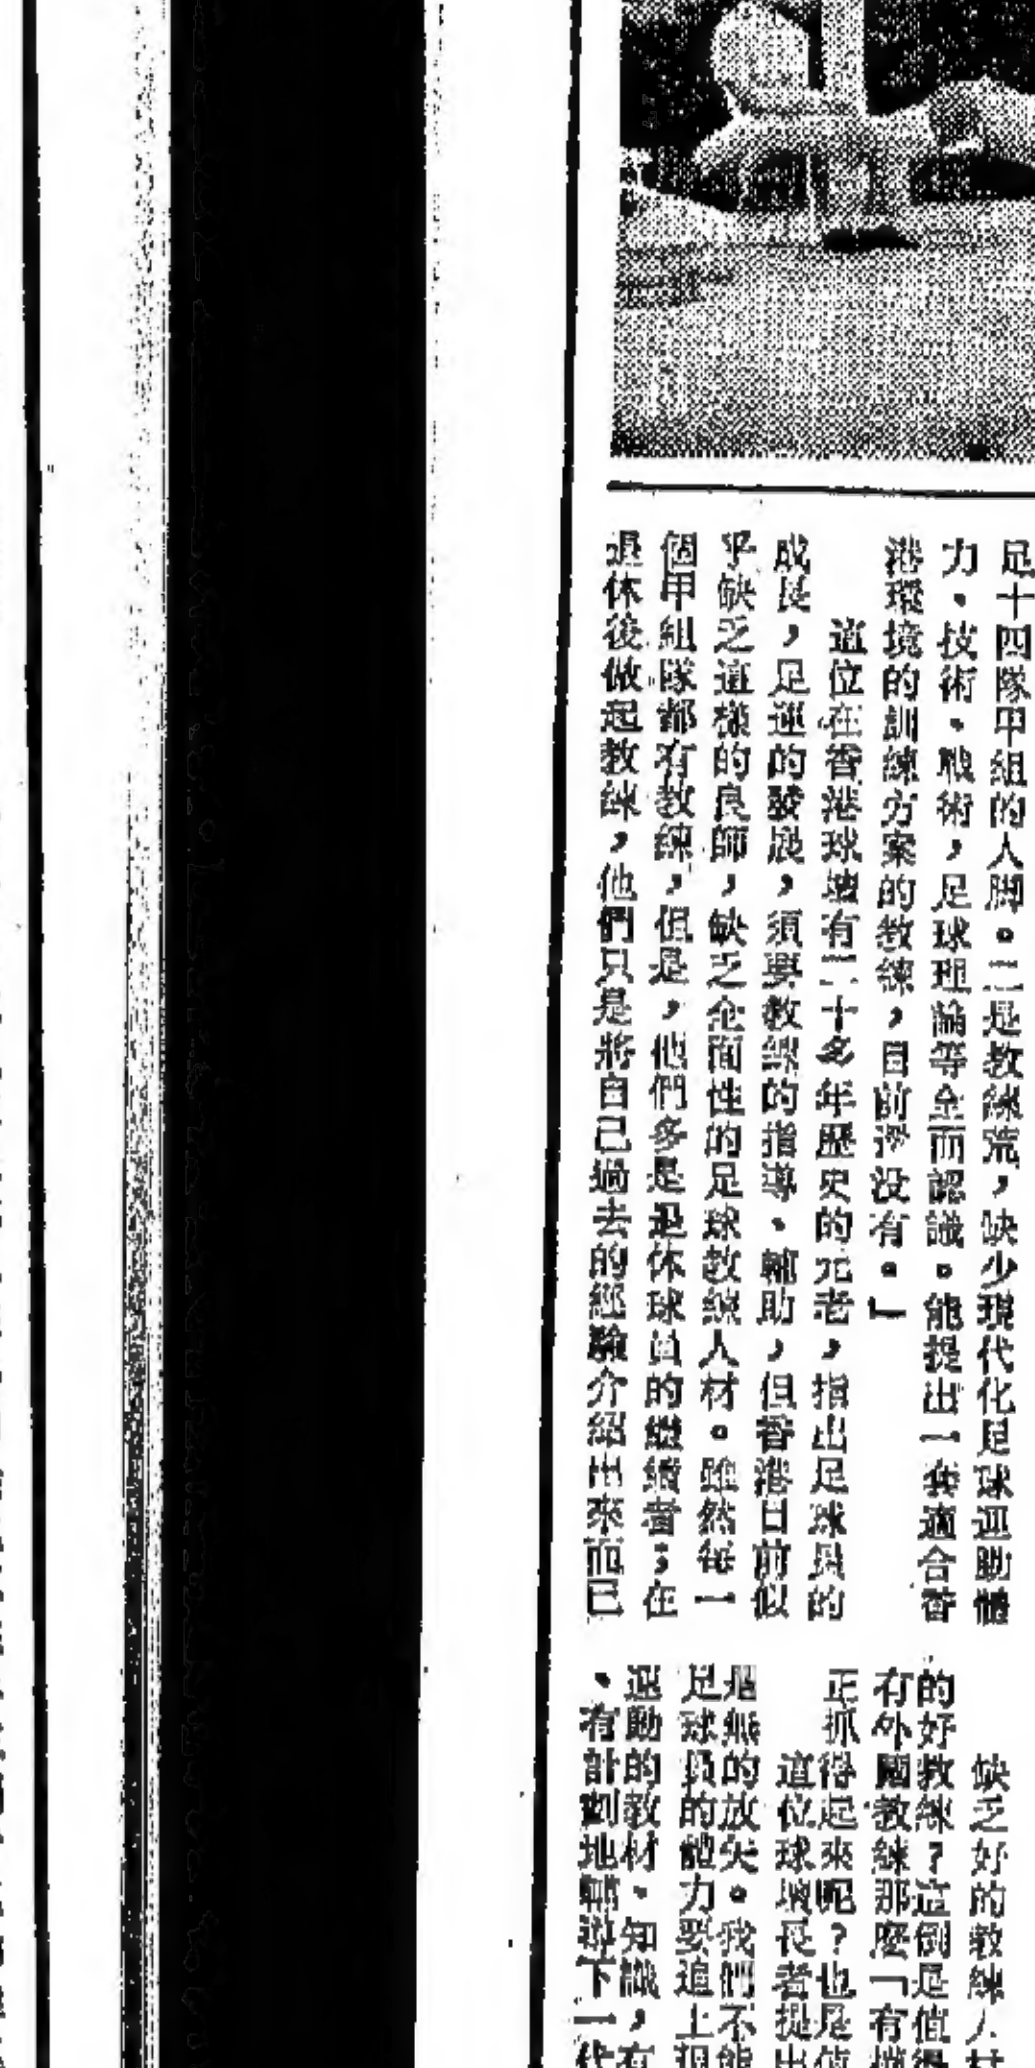 足十四隊甲組的人脚。二是教練荒，缺少現代化足球運動體
力、技術、戰術，足球理論等全面認識。能提出一套適合香
港環境的訓練方案的教練，目前沒有。」
這位在香港球壇有二十多年歷史的元老，指出足球員的
成長，足運的發展，須要教練的指導、輔助，但香港目前似
乎缺乏這樣的良師，缺乏全面性的足球教練人材。雖然每一
個甲組隊都有教練，但是，他們多是退休球員的繼續者；在
退休後做起教練，他們只是將自己過去的經驗介紹出來而已
缺乏好的教練人材
的好教練？這倒是值得
有外國教練那麼「有
正抓得起來呢？也是值
這位球壇長者提出
是無的放矢。我們不能
足球員的體力要追上現
運動的教材、知識，有
、有計劃地輔導下一代